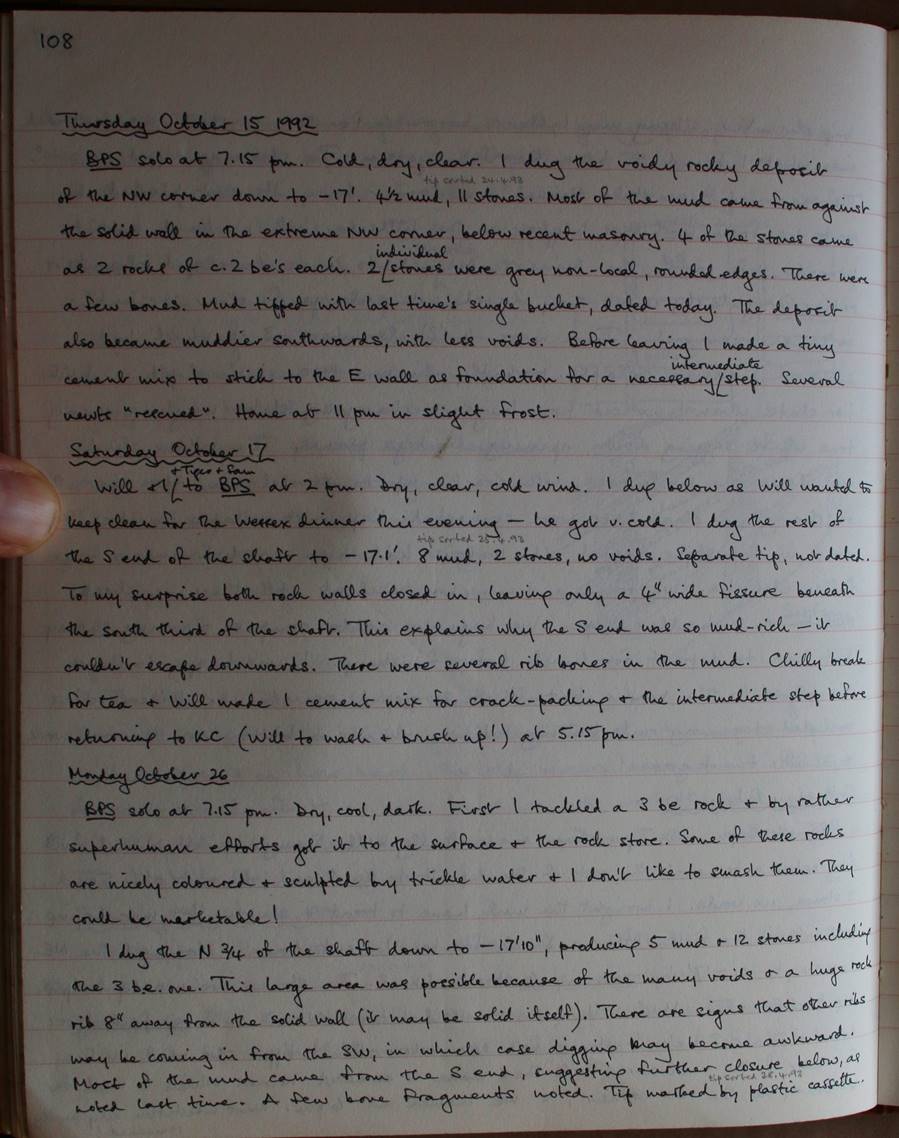 108
Thursday October 15 1992
BPS solo at 7.15 pm. Cold, dry, clear. I dug the voidy rocky deposit
tip sorted 24.4.93
of the NW corner down to -17'. 4½ mud, 11 stones. Most of the mud came from against
the solid wall in the extreme NW corner, below recent masonry. 4 of the stones came
individual
as 2 rocks of c.2 be's each. 2/stones were grey non-local, rounded edges. There were
a few bones. Mud tipped with last time's single bucket, dated today. The deposit
also became muddier southwards, with less voids. Before leaving I made a tiny
intermediate
cement mix to stick to the E wall as foundation for a necessary/step. Several
newts "rescued". Home at 11 pm in slight frost.
Saturday October 17
+ Tiger + Sam
Will + I/to BPS at 2 pm. Dry, clear, cold wind. I dug below as Will wanted to
keep clean for the Wessex dinner this evening — he got v. cold. I dug the rest of
tip sorted 25.4.93
the S end of the shaft to -17.1'. 8 mud, 2 stones, no voids. Separate tip, not dated.
To my surprise both rock walls closed in, leaving only a 4" wide fissure beneath
the south third of the shaft. This explains why the S end was so mud-rich — it
couldn't escape downwards. There were several rib bones in the mud. Chilly break
for tea + Will made 1 cement mix for crack-packing + the intermediate step before
returning to KC (Will to wash + brush up!) at 5.15 pm.
Monday October 26
BPS solo at 7.15 pm. Dry, cool, dark. First I tackled a 3 be rock + by rather
superhuman efforts got it to the surface + the rock store. Some of these rocks
are nicely coloured + sculpted by trickle water + I don't like to smash them. They
could be marketable!
I dug the N 3/4 of the shaft down to -17'10", producing 5 mud + 12 stones including
the 3 b.e. one. This large area was possible because of the many voids + a huge rock
rib 8" away from the solid wall (it may be solid itself). There are signs that other ribs
may be coming in from the SW, in which case digging may become awkward.
Most of the mud came from the S end, suggesting further closure below, as
tip sorted 28.4.93
noted last time. A few bone fragments noted. Tip marked by plastic cassette.